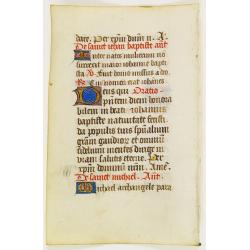 dare. Per xpm dnm n. A.
De sanct iehan baptiste ant
Inter natos mulierum no
surrexit maior iohanne bapti
sta. Fuit homo missus a deo
nomen erat iohannes
Deus qui Oratio
presentem diem honora
bilem in beati iohannis
baptiste natiuitate fecisti
da populis tuis spiritualium
gratiam gaudiorum et omnium
fidelium mentes dirige in
viam salutis eterne. Per
xpm dnm n. Ame.
De sanct michiel. Ant.
Michael archangele para